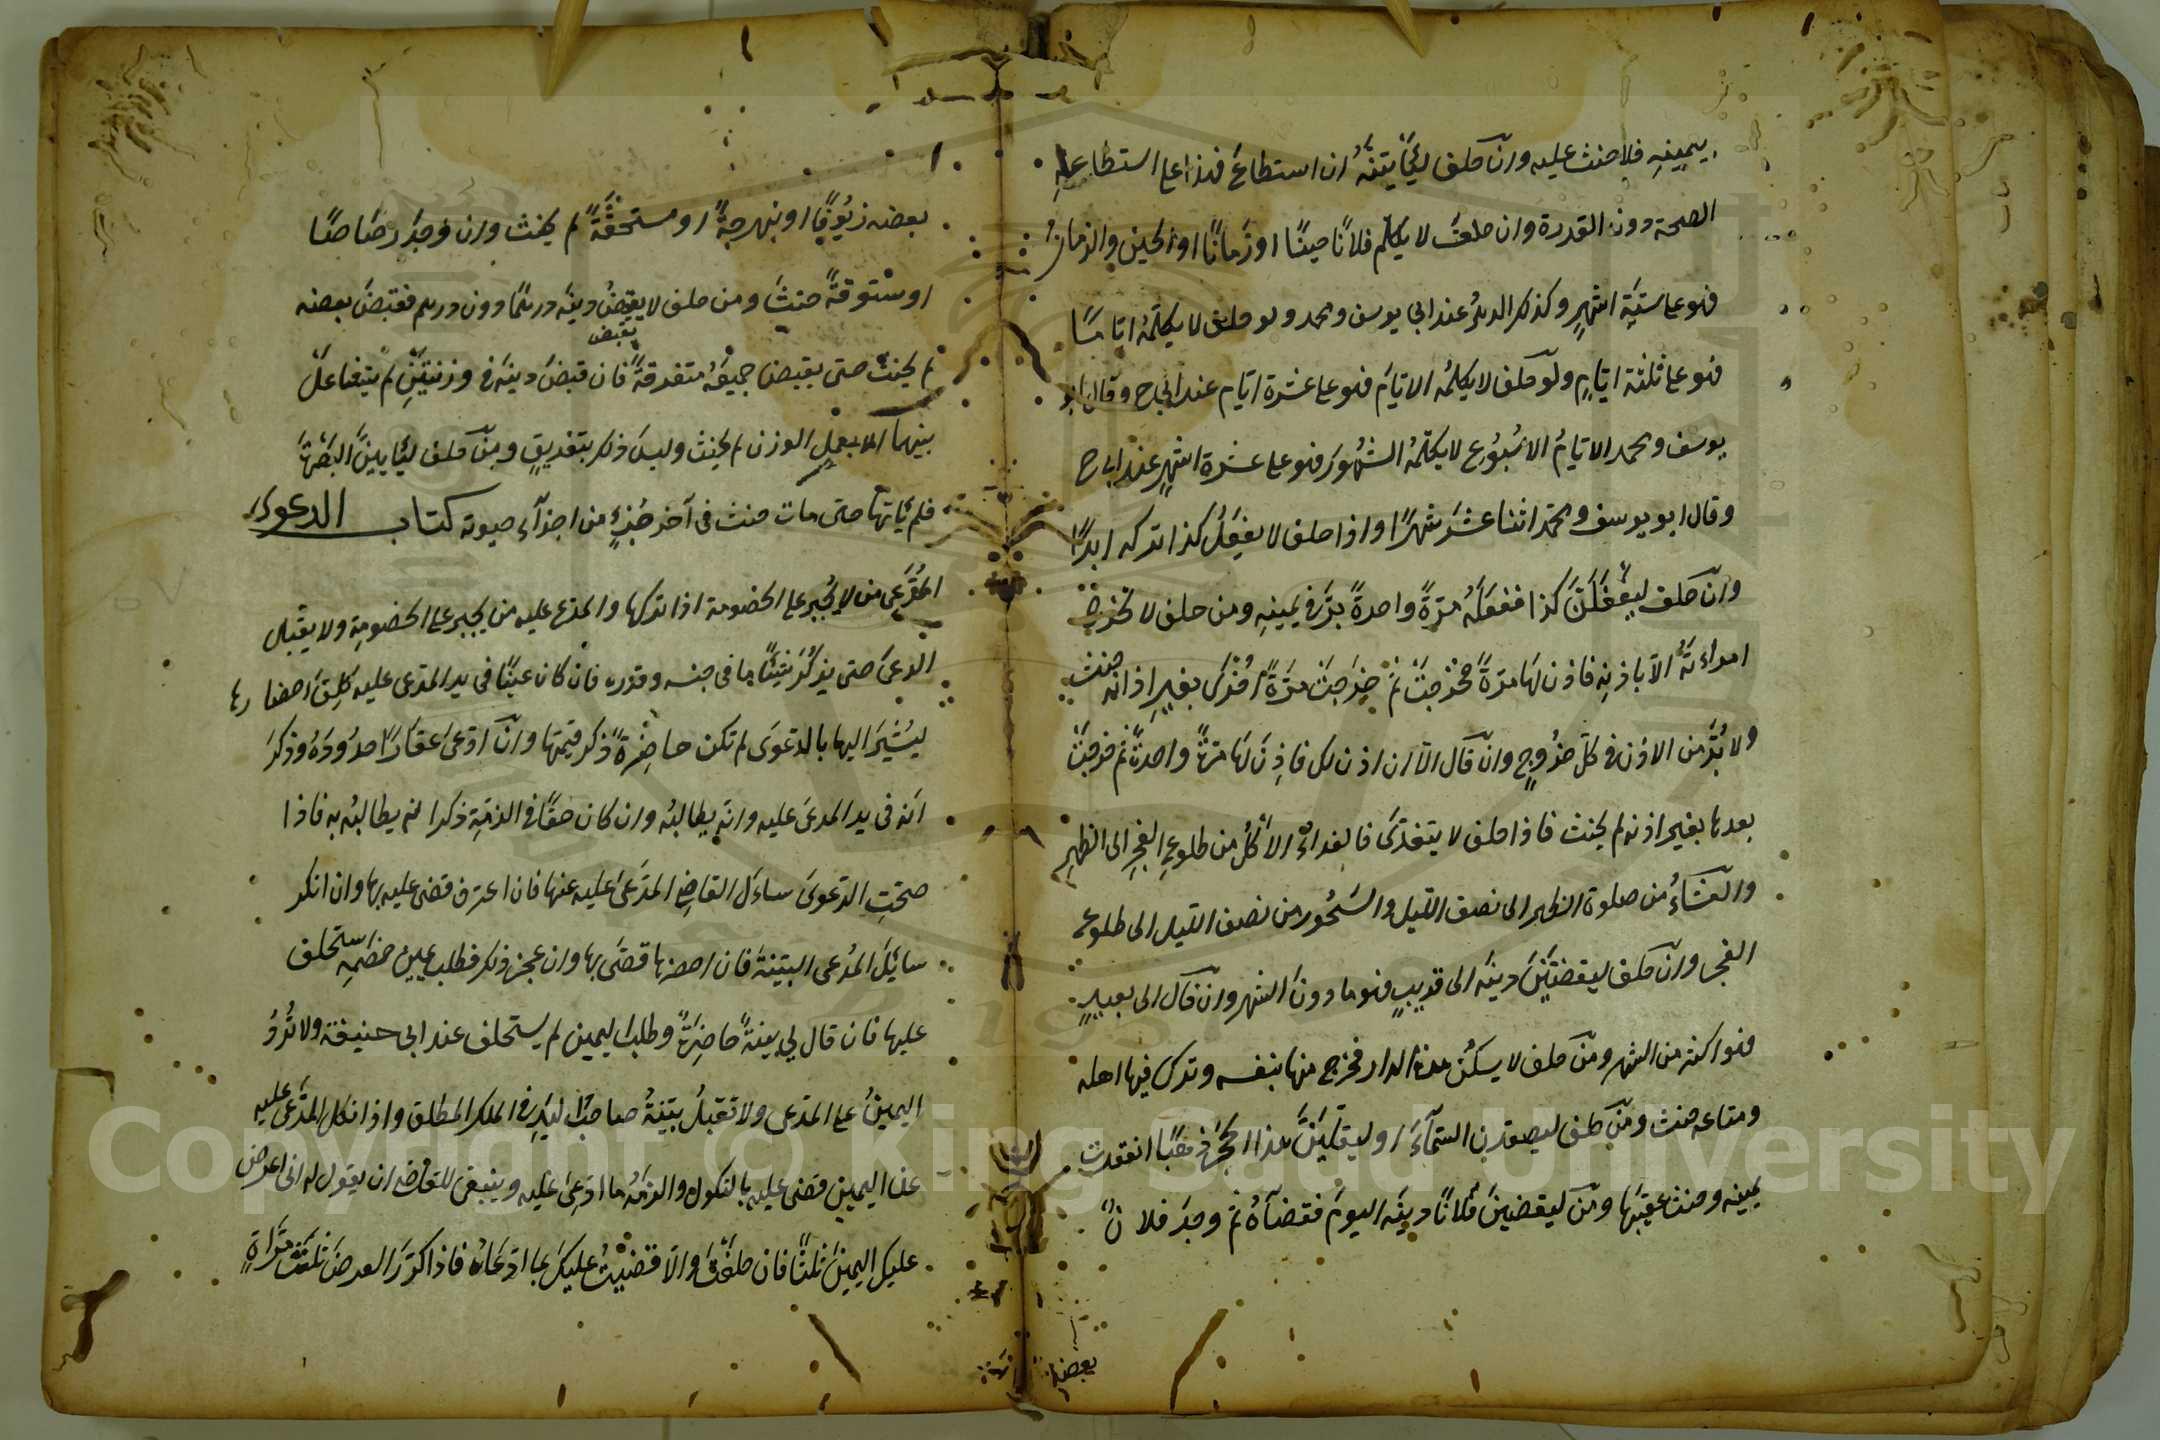 يمينِهِ فلا حنث عليه وانْ حلف ليَأتيَنَّهُ ان استطاعَ فهذا على استطاعةِ
الصحة دون القدرة وان حلف لا يكلّم فلانًا حينًا او زمانًا او الحين والزمانُ
فهو على ستّة اشهرٍ وكذلك الدهرُ عند ابي يوسف ومحمد ولو حلف لا يكلّمُه ايّامًا
فهو على ثلثة ايّامٍ ولو حلف لا يكلمُه الايّامَ فهو على عشرة ايّام عند ابي ح وقال ابو
يوسف ومحمد الايّامُ الاسْبُوع لا يكلّمُه الشهُورَ فهو على عشرة اشهرٍ عند ابي ح
وقال ابو يوسف ومحمّد اثنا عشَرَ شهرًا واذا حلف لا يفعَلُ كذا تركه ابدًا
وانْ حلف ليفعَلَنَّ كذا ففعَلَهُ مرّةً واحدةً برَّ في يمينِهِ ومن حلف لا تخرج
امراءتُهُ الّا باذنِه فاذن لهَا مرّةً فخرجتْ ثمّ خرَجتْ مرّةً اُخْرَى بغيرِ اذنه حنث
ولا بُدَّ من الاذن في كلّ خرُوجٍ وانْ قال الّا ان اذن لك فاذِنَ لَهَا مرّةً واحدةً ثمّ خرجتْ
بعدها بغير اذنه لم يحنث فاذا حلف لا يتغدّى فالغداءُ الاَكْلُ من طلوعِ الفجرِ الى الظهرِ
والعشاءُ من صلوة الظهر الى نصف اللّيل والسَّحُور من نصف اللّيل الى طلوع
الفجر وانْ حلف ليقضيَنَّ دينَه الى قريبٍ فهو ما دونَ الشهر وانْ قال الى بعيدٍ
فهو اكثر من الشهر ومنْ حلف لا يسكُن هذه الدار فخرج منها بنفسه وترك فيها اهله
ومتاعه حنث ومنْ حلف ليصعدن السّمآءَ او ليقلبَنَّ هذا الحجَرَ ذهبًا انعقدت
يمينه وحنث عقيبَها ومن ليقضينَ فُلانًا دينَه اليومَ فقضآهُ ثمّ وجدَ فلانٌ
بعضه
بعضه زيُوفًا او نبهرجةً او مستحقّةً لم يحنث وان وجدَ رصَاصًا
او ستوقةً حنثَ ومن حلف لا يقبضُ دينَه درهمًا دون درهم فقبضَ بعضه
لم يحنث حتى يقبضا جميعَهُ متفرقةً فان قبضَ دينَه في وزنتيْنِ لم يتشاغلْ
يقبض
بينهما الا بعمل الوزن لم يحنث وليسَ ذلك بتفريقٍ ومنْ حلف ليَأتيَنَّ البصْرَةَ
فلم يَأتها حتى مات حنث في آخر جُزءٍ من اجزآءِ حيوته كتاب الدعوى
المُدَّعي من لا يُجبر على الخصومة اذا تركها والمدعى عليه من يجبر على الخصومةِ ولا يقبل
الدعوى حتى يذكُرَ شيئًا ما في جنسه وقدره فان كان عينًا في يد المدّعى عليه كُلِّفَ احضارها
ليُشيرَ اليها بالدعوَى لم تكن حاضِرةً ذكر قيمتها وانْ ادّعى عَقارًا حدُودَهُ وذكرَ
انّه في يد المدعى عليه وانّه يطالبُه وان كان حقًّا في الذمّةِ ذكر انه يطالبُه به فاذا
صحّتِ الدّعوىَ ساءَل القاضِي المدَّعىَ عليه عنها فان اعترف قضى عليه بها وان انكر
سائَلَ المُدعى البيّنةَ فان احضرها قضَى بها وان عجز ذلك فطلب يمين خصْمِهِ استحلف
عليها فان قال لي بينةً حاضِرةً وطلب اليمين لم يستحلف عند ابي حنيفة ولا تُردُّ
اليمينُ على المدّعي ولا تقبلُ بيّنةُ صاحبُ اليَدِ في الملك المطلق واذا نكل المدَّعى عليه
عن اليمينِ قضى عليه بالنكولِ والزمَهُ ما ادّعى عليه وينبغى للقاضي ان يقول له انى اعرض
عليك اليمينَ ثلثًا فان حلفتَ والّا قضيتُ عليك بما ادّعَاهُ فاذا كرّرَ العرضَ ثلث مرّاةٍ